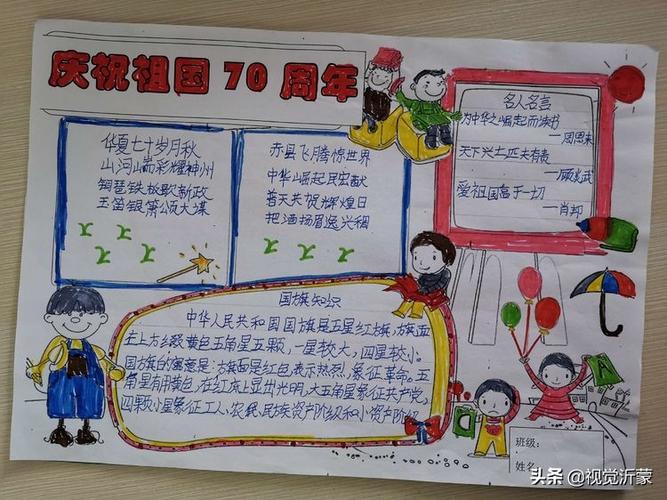 庆祝祖国70周年
华夏七十岁月秋
山河端彩耀神州
铜琶铁板歌新政
玉笛银箫颂大谋
赤县飞腾惊世界
中华崛起民宏猷
普天共贺辉煌日
把酒扬眉逸兴稠
名人名言
为中华之崛起而读书
—周恩来
天下兴亡匹夫有责
—顾炎武
爱祖国高于一切
—肖邦
国旗知识
中华人民共和国国旗是五星红旗,旗面
左上方缀黄色五角星五颗,一星较大,四星较小。
国旗的寓意是:旗面是红色,表示热烈,象征革命。五
角星用黄色,在红底上显出光明,大五角星象征共产党,
四颗小星象征工人、农民、民族资产阶级和小资产阶级
A
班级:
姓名
头条@视觉沂蒙